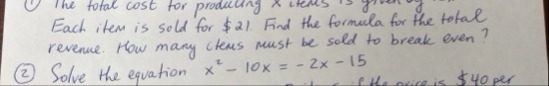 ① The total cost for producing x items is given by
Each item is sold for $21. Find the formula for the total
revenue. How many items must be sold to break even?
② Solve the equation x² - 10x = -2x - 15
if the price is $40 per